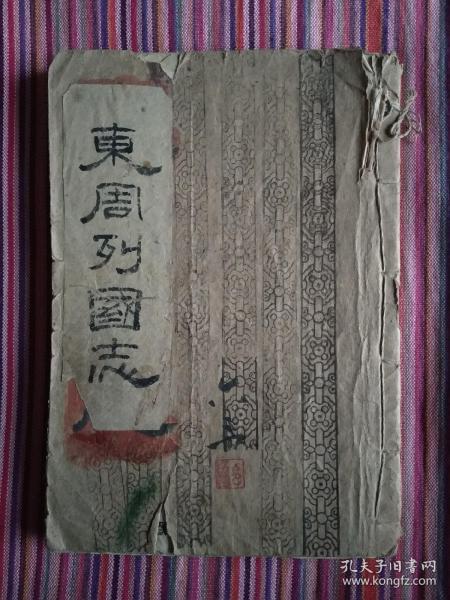 東周列國志
孔夫子旧书网
www.kongfz.com